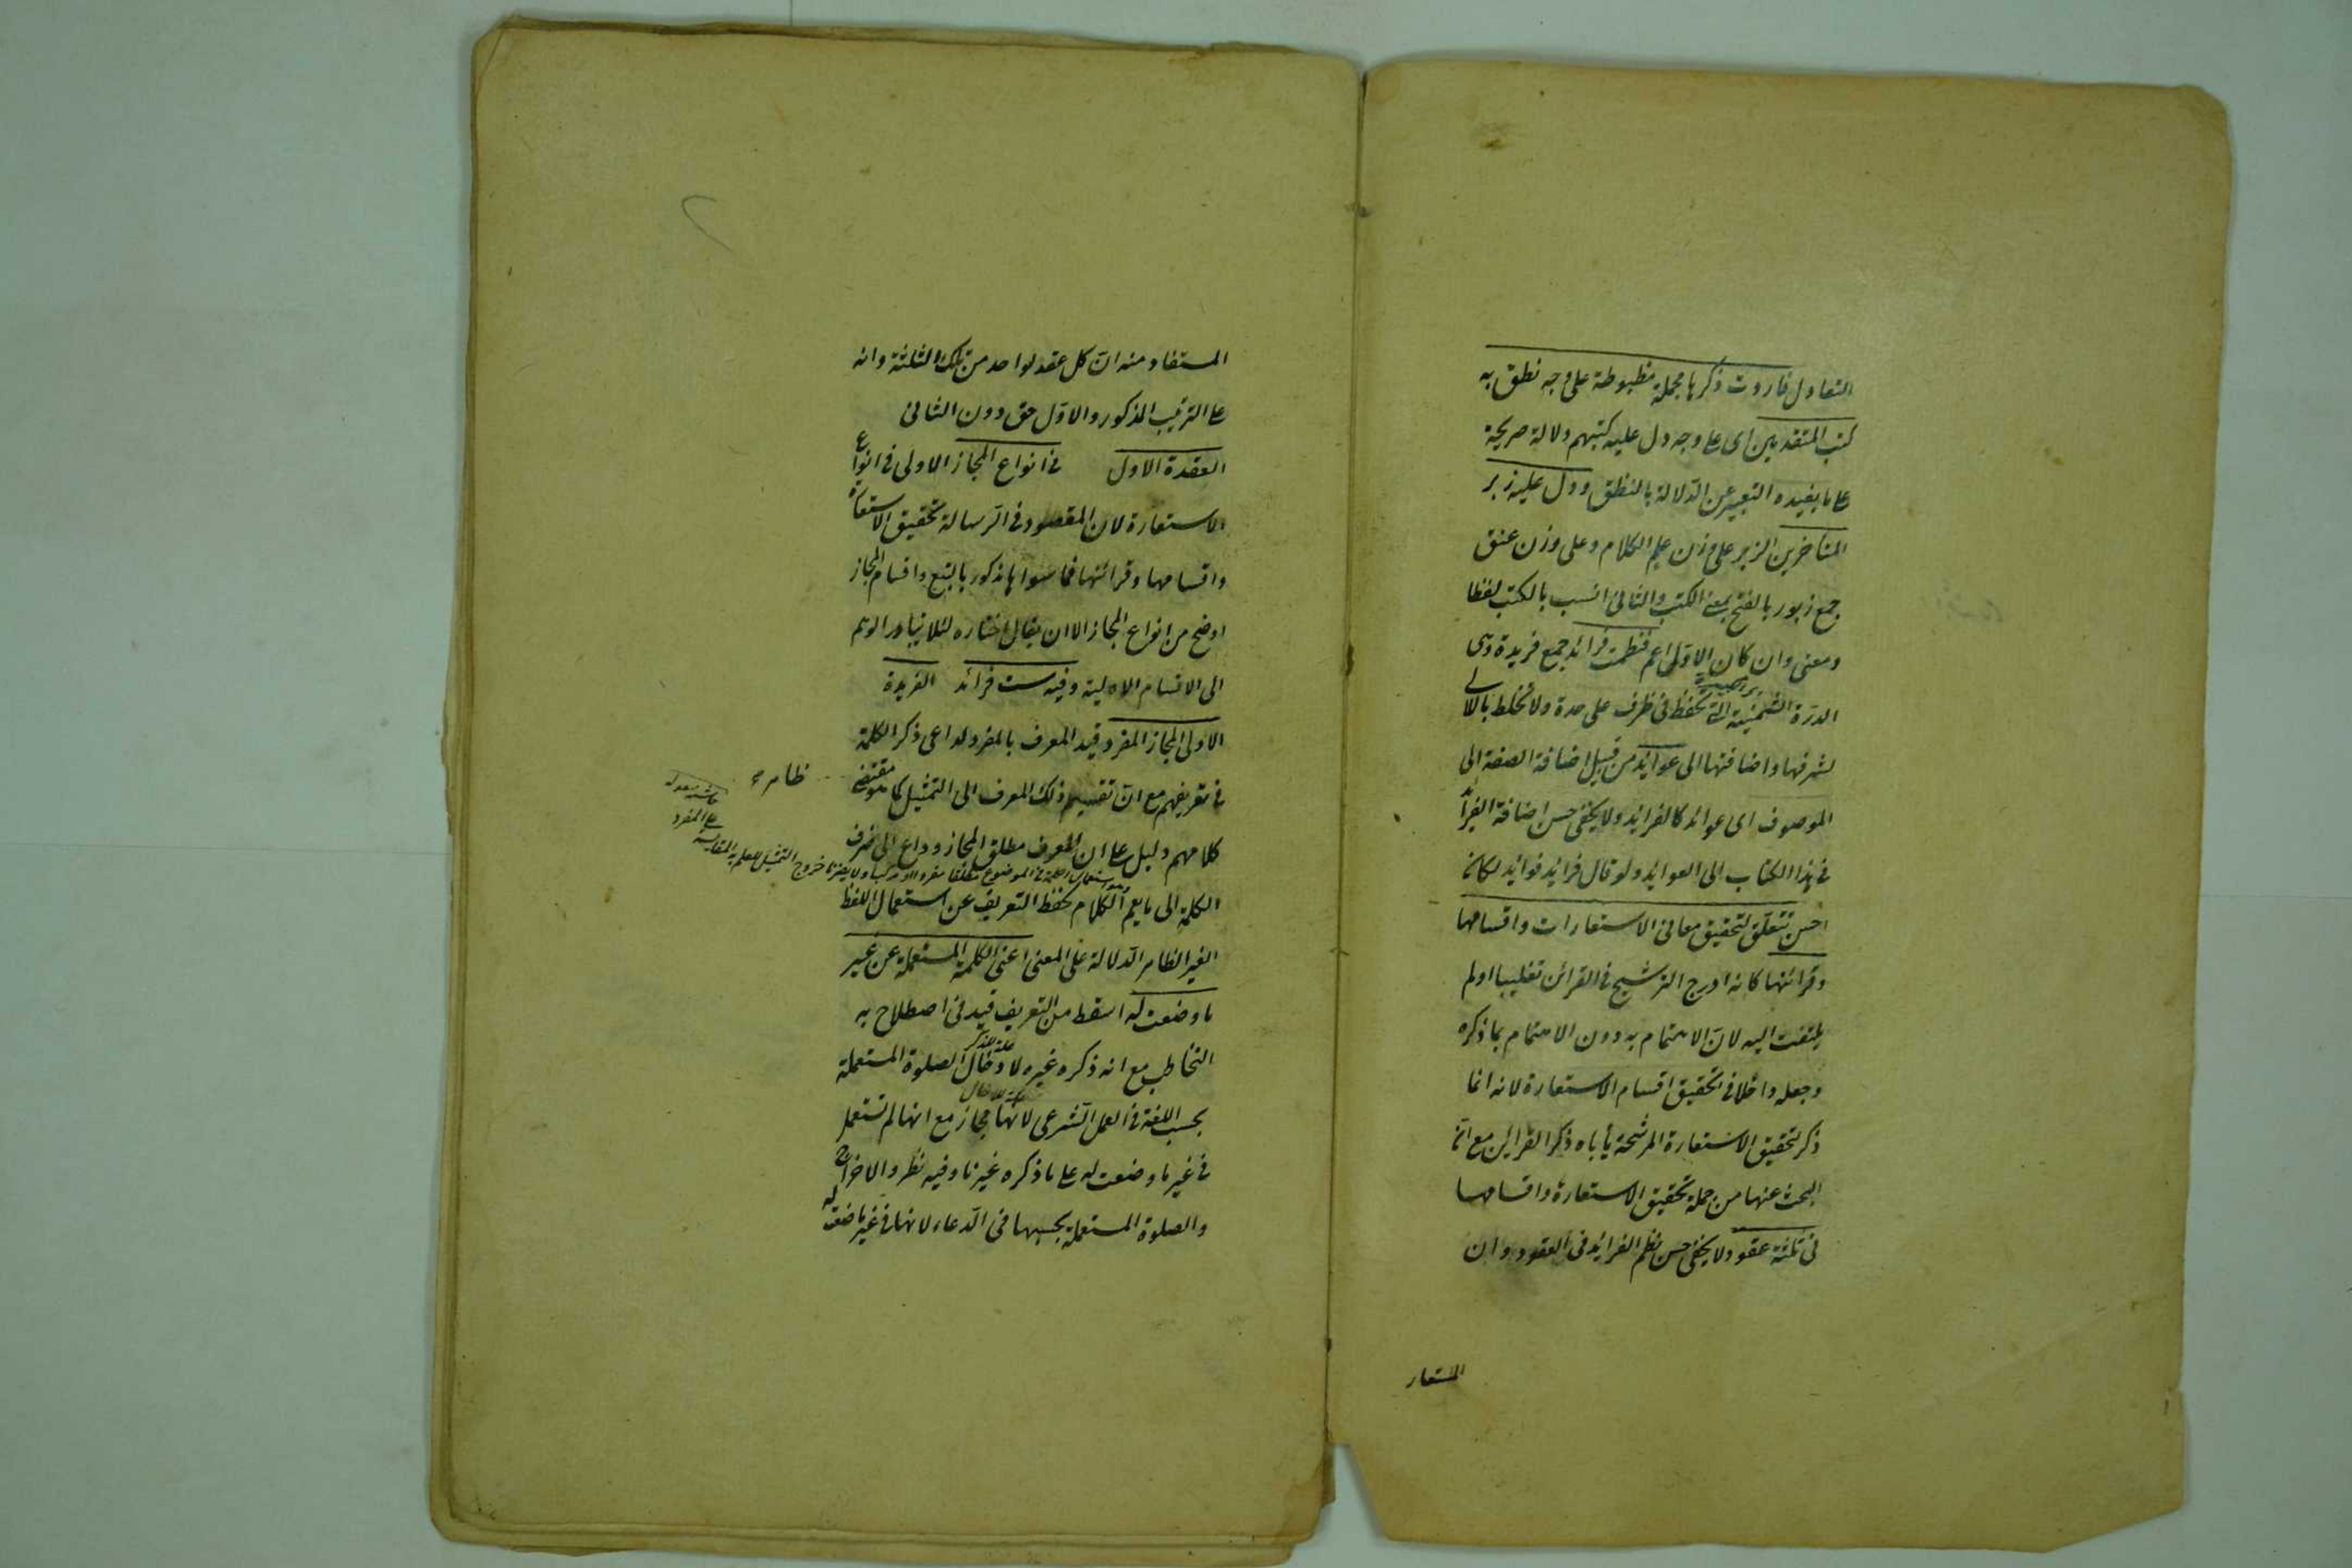 التعاول فاروت ذكرها مجملة مضبوطة على وجه نطق به
كتب المتقدمين اى على وجه دل عليه كتبهم دلالة صريحة
على ما يفيده التعبير عن الدلالة بالنطق ودل عليه زبر
المتأخرين الزبر على وزن علم الكلام وعلى وزن عنق
جمع زبور بالفتح بمعنى الكتب والثانى انسب بالكتب لفظا
ومعنى وان كان الاول اعم فنظمت فرائد جمع فريدة وهى
الدرة الثمينة التى تحفظ فى ظرف على حدة ولا تخلط باللالى
لشرفها واضافتها الى عوائد من قبيل اضافة الصفة الى
الموصوف اى عوائد كالفرائد ولا يخفى حسن اضافة الفرائد
فى هذا الكتاب الى العوائد ولو قال فرائد فوائد لكان
احسن تتعلق لتحقيق معانى الاستعارات واقسامها
وقرائنها كانه ادرج الترشيح فى القرائن تغليبا او لم
يلتفت اليه لان الاهتمام به دون الاهتمام بما ذكره
وجعله داخلا فى تحقيق اقسام الاستعارة لانه انما
ذكر لتحقيق الاستعارة المرشحة يأباه ذكر القرائن مع ان
البحث عنها من جملة تحقيق الاستعارة واقسامها
فى ثلثة عقود ولا يخفى حسن نظم الفرائد فى العقود وان
المستعار
المستفاد منه ان كل عقد لواحد من تلك الثلثة وانه
على الترتيب المذكور والاول حق دون الثانى
العقدة الاول فى انواع المجاز الاولى فى انواع
الاستعارة لان المقصود فى الرسالة تحقيق الاستعارة
واقسامها وقرائنها فما سواها مذكور بالتبع واقسام المجاز
اوضح من انواع المجاز الا ان يقال اختاره لئلا يتبادر الوهم
الى الاقسام الاولية وفيه ست فرائد الفريدة
الاولى المجاز المفرد قيد المعرف بالمفرد لداعى ذكر الكلمة
فى تعريفهم مع ان تقسيم ذلك المعرف الى التمثيل كما هو مقتضى
ظاهر
كلامهم دليل على ان المعرف مطلق المجاز وداع الى صرف
الكلمة الى ما يعم الكلام لحفظ التعريف عن استعمال اللفظ
الغير الظاهر الدلالة على المعنى اعنى الكلمة المستعملة عن غير
ما وضعت له اسقط من التعريف قيد فى اصطلاح به
التخاطب مع انه ذكره غيره لادخال الصلوة المستعملة
علة للذكر
بحسب اللغة فى العمل الشرعى لانها مجاز مع انها لم تستعمل
علة للادخال
فى غير ما وضعت له على ما ذكره غيرنا وفيه نظر والاخراج
والصلوة المستعملة بحسبها فى الدعاء لانها فى غير ما وضعت له